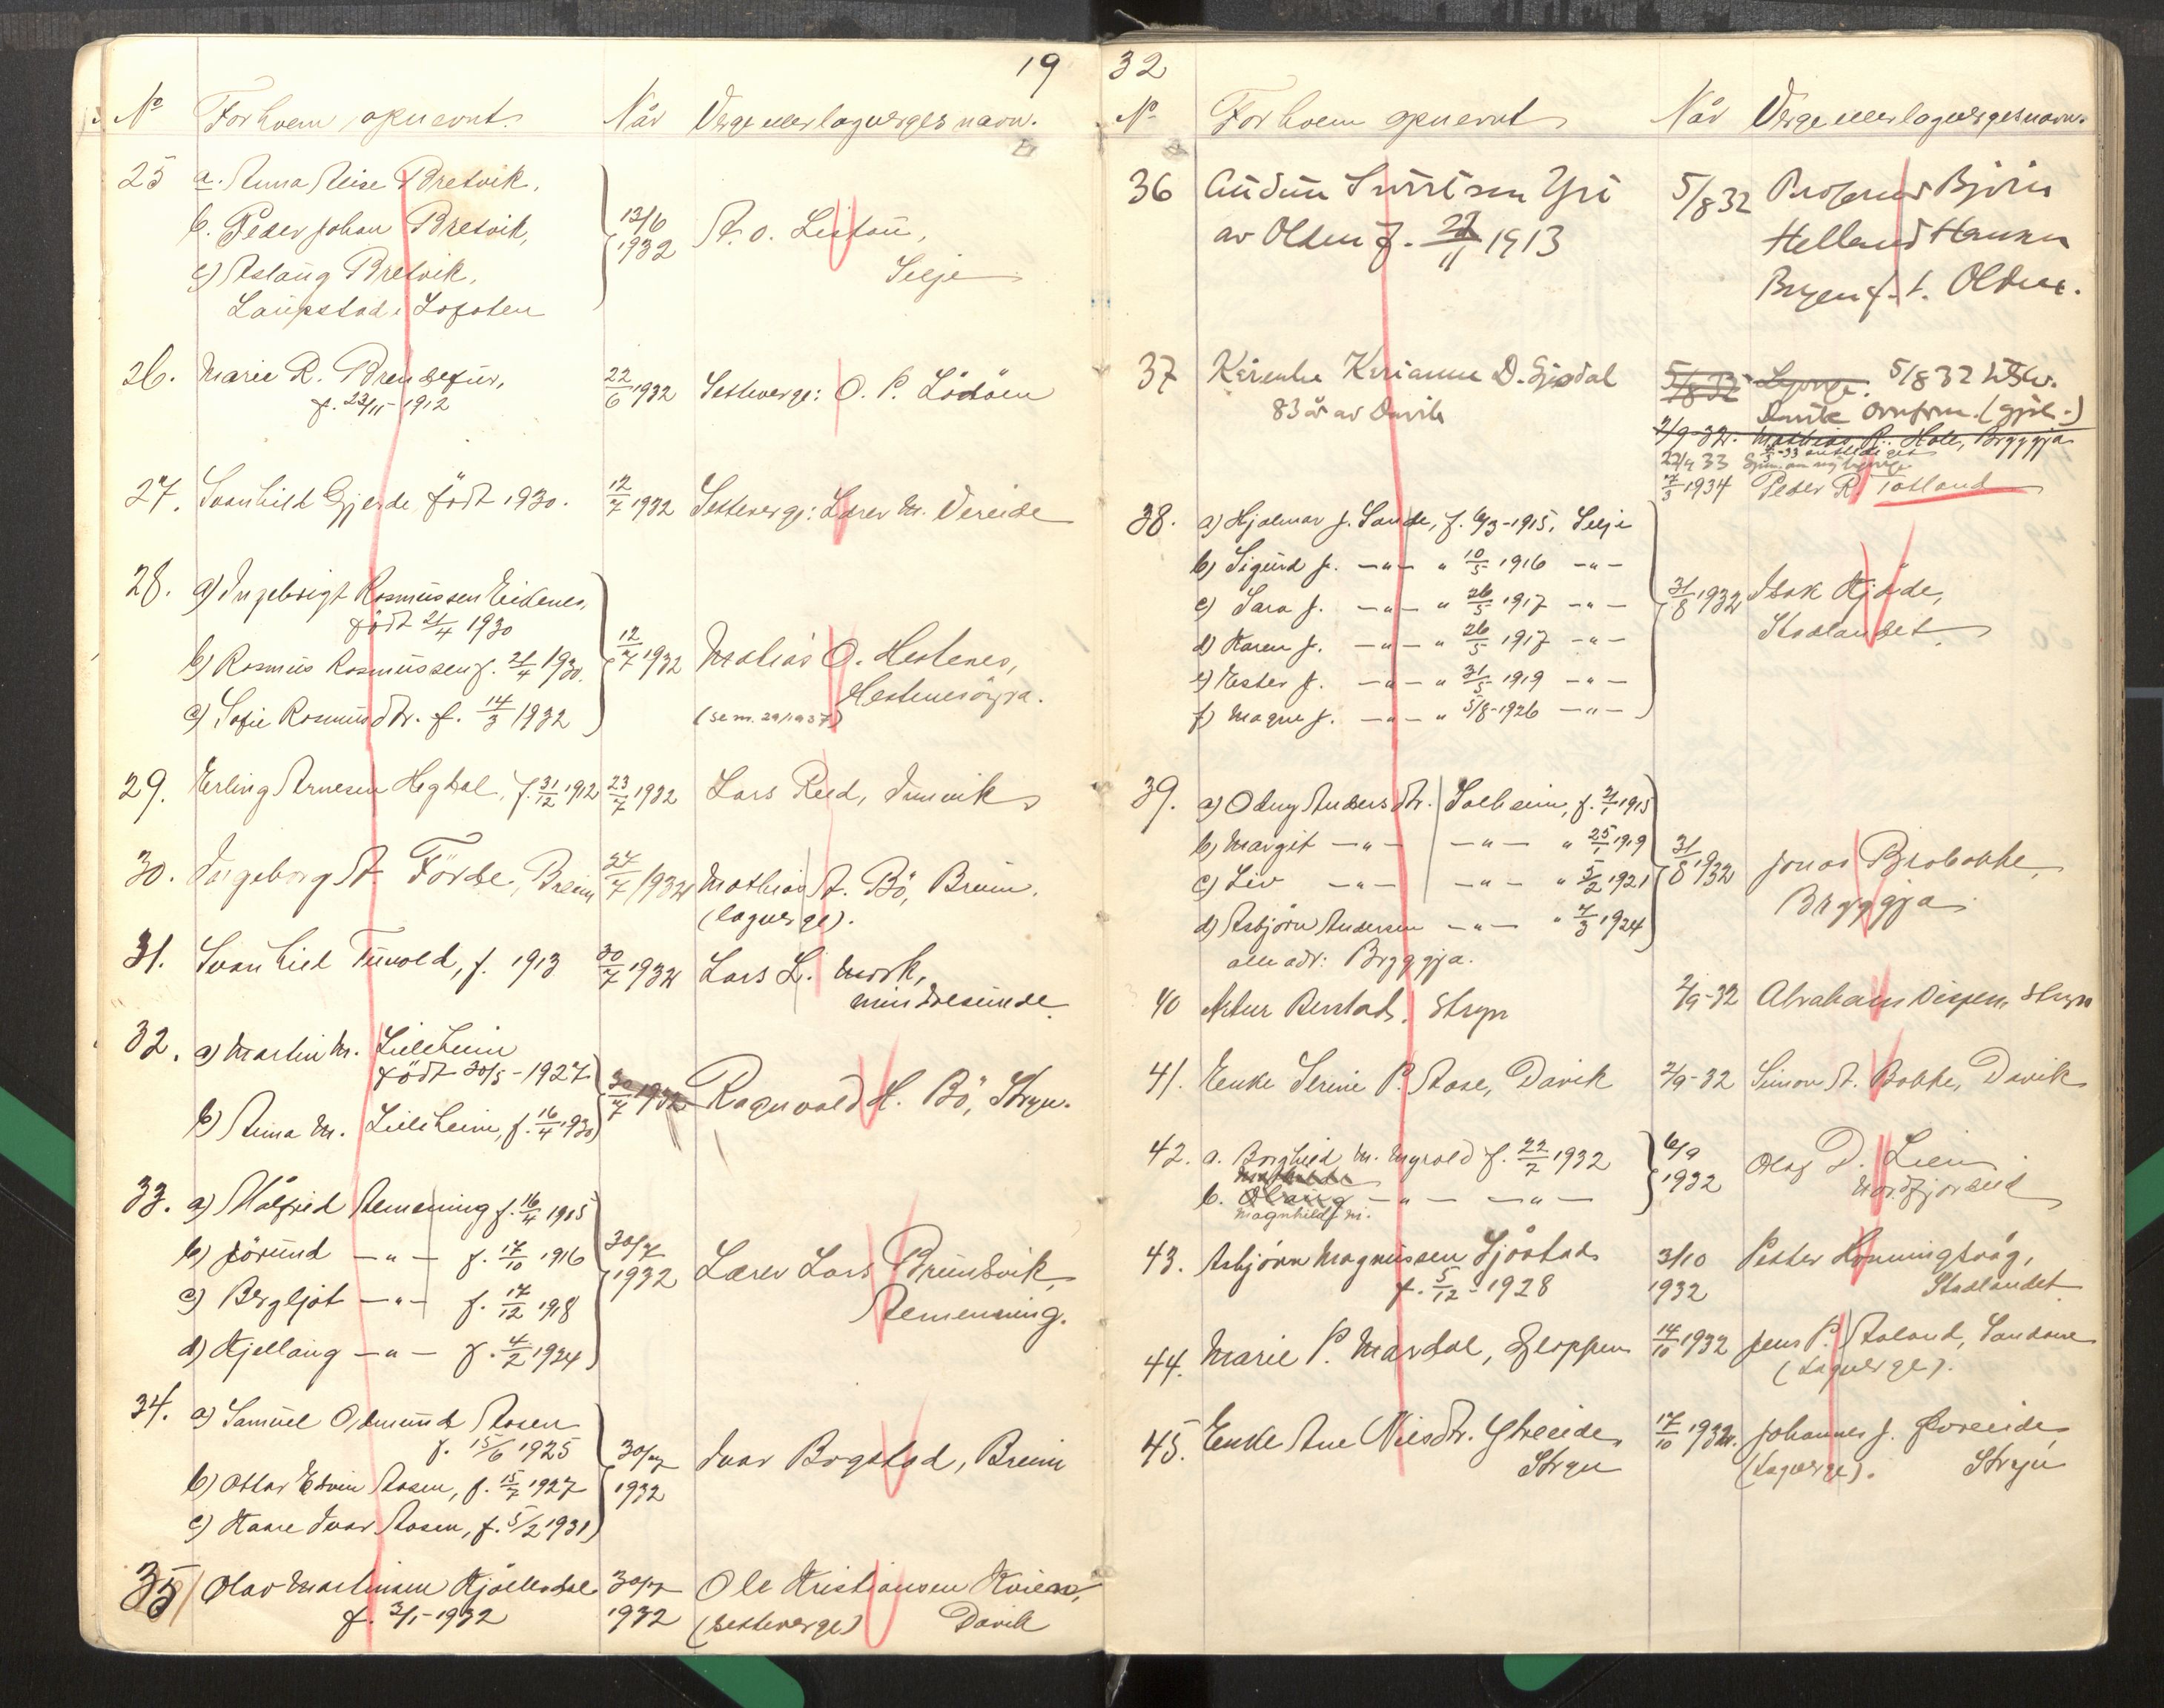 19
No For hvem opnevnt. Når Verge eller lagverges navn.
25 a. Anna Elise Bretvik,
b. Peder Johan Bretvik,
c) Aslaug Bretvik,
Laupstad i Lofoten
13/6 1932
A. O. Listau,
Selje
26. Marie R.
f. 23/11-1912
22/6 1932 Setteverge: O. P. Lödöen
27. Svanhild Gjerde född 1930. 12/7 1932 Setteverge: Lærer M. Vereide
28. a) Ingebrigt Rasmussen Eidenes,
född 21/4 1930
b) Rasmus Rasmussen f. 21/4 1930.
c) Sofie Rasmusdtr. f. 14/3 1932
12/7 1932 Matias O. Hestenes,
Hestenesöyra.
(se nr. 29/1937)
29. Erling Arnesen Hegdal, f. 31/12 1912 23/7 1932 Lars Reed, Innvik
30. Ingeborg A. Förde, Breim 24/7 1932 Mathias A. Bö, Breim.
(lagverge).
31. Svanhild Tuvold, f. 1913 30/7 1932 Lars L. Mork,
Mindresunde
32. a) Martin M. Lilleheim
född 30/5-1927
b) Anna M. Lilleheim, f. 16/4 1930
30/7 1932 Ragnvald H. Bö, Stryn.
33. a) Målfrid Aemenning f. 16/4 1915
b) Jörund —"— f. 17/10 1916
c) Bergljot —"— f. 17/12 1918
d) Kjellaug —"— f. 4/2 1924
30/7 1932 Lærer Lars Brundvik,
Aemenning.
34. a) Samuel Odmund Aasen
f. 15/6 1925
b) Ottar Edvin Aasen, f. 15/7 1927
c) Kaare Ivar Aasen, f. 5/2 1931
30/7 1932 Ivar Bogstad, Breim
35/ Olav Martinsen Kjöllesdal
f. 3/1-1932
30/7 1932 Ole Kristiansen Kvien,
(setteverge) Davik
32
No For hvem opnevnt Når Verge eller lagverges navn.
36 Audun Sivertsen Yri
av Olden f. 27/11 1913
5/8 32 Professor Björn
Helland Hansen
Bergen f. t. Olden.
37 Kårenke Karianne D. Gjesdal
83 år av Davik
5/8 32 Lagverge. 5/8 32
Davik (gjel.)
2/9-32. Mathias R. Hole, Bryggja
22/4 33
7/3 1934 Peder R. Totland
38. a) Hjalmar J. Sande, f. 6/3-1915, Selje
b) Sigurd J. —"— " 10/5 1916 —"—
c) Sara J. —"— " 26/5 1917 —"—
d) Karen J. —"— " 26/5 1917 —"—
e) Ester J. —"— " 31/5 1919 —"—
f) Magne J. —"— " 5/8-1926 —"—
31/8 1932 Isak Kjöde,
Stadlandet
39. a) Odny Andersdtr. Solheim, f. 21/1 1915
b) Margit —"— —"— " 25/1 1919
c) Liv —"— —"— " 5/2 1921
d) Asbjörn Andersen —"— " 7/3 1924
alle adr: Bryggja.
31/8 1932 Jonas Brobakke,
Bryggja
40 Artur Renstad, Stryn 2/9-32 Abraham Dispen, Stryn
41. Enke Serine P. Aase, Davik 2/9-32 Simon A. Bakke, Davik
42. a. Borghild M. Myrold f. 22/7 1932
b. Olaug —"— —"—
Magnhild M.
6/9 1932 Olaf D. Lien
Nordfjordeid
43. Asbjörn Magnussen Sjåstad
f. 5/12-1928
3/10 1932 Petter Honningsvåg,
Stadlandet
44. Marie P. Mardal, Gloppen 14/10 1932 Jens P. Aaland, Sandane
(Lagverge).
45. Enke Ane Nilsdtr. Ytreeide
Stryn
17/10 1932. Johannes J.Övreeide
(Lagverge). Stryn